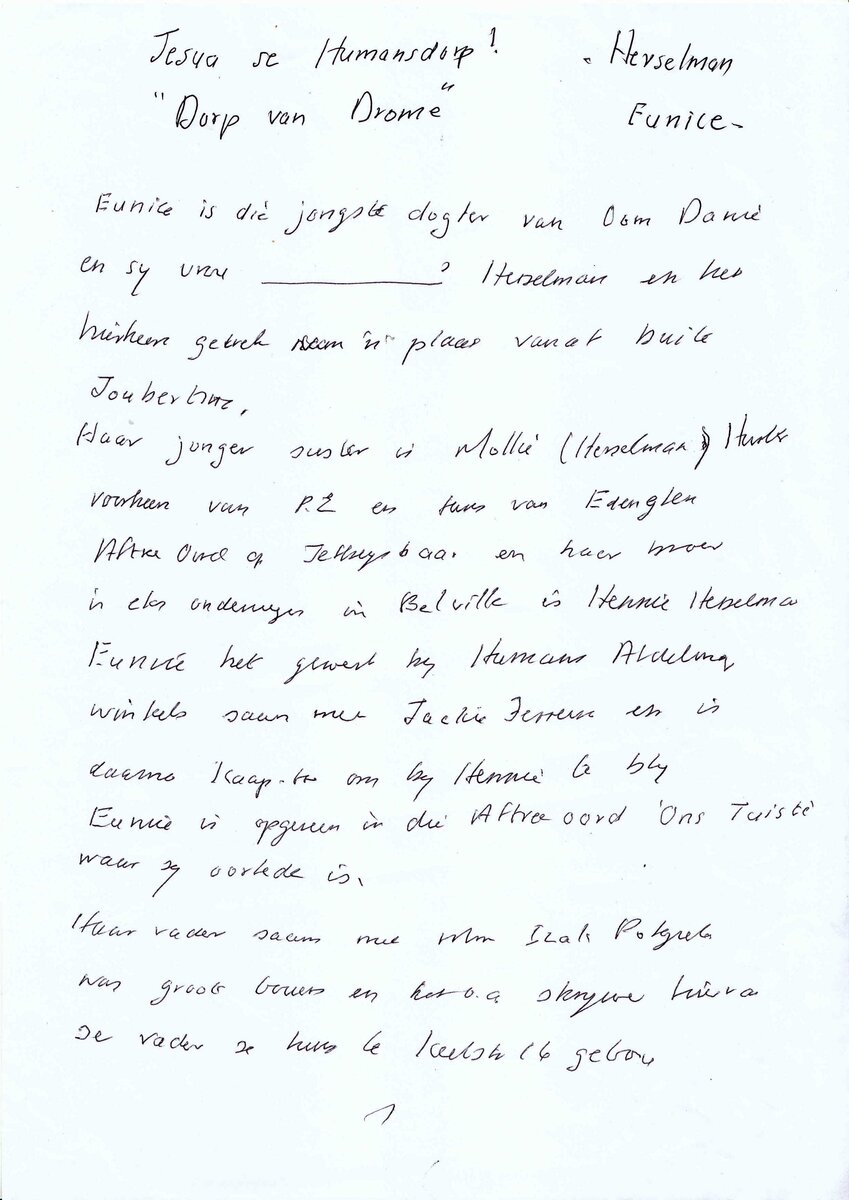 Jesua se Humansdorp! - Herselman
"Dorp van Drome" Eunice -
Eunice is die jongste dogter van Oom Danie
en sy vrou ________? Herselman en het
hierheen getrek 'n plaas vanaf buite
Joubertina.
Haar jonger suster is Mollie (Herselman)
voorheen van P.E en tans van Edenglen
Aftree Oord op Jeffreysbaai en haar broer
is eks onderwyser in Belville is Hennie Herselman
Eunice het gewerk by Humans Afdeling
winkels saam met Jackie Ferreira en is
daarna Kaap-toe om by Hennie te bly
Eunice is opgeneem in die Aftree oord 'Ons Tuiste'
waar sy oorlede is.
Haar vader saam met wlm Izak Potgieter
was groot bouers en het o.a skrywer hiervan
se vader se huis te Kerkstr 16 gebou
1